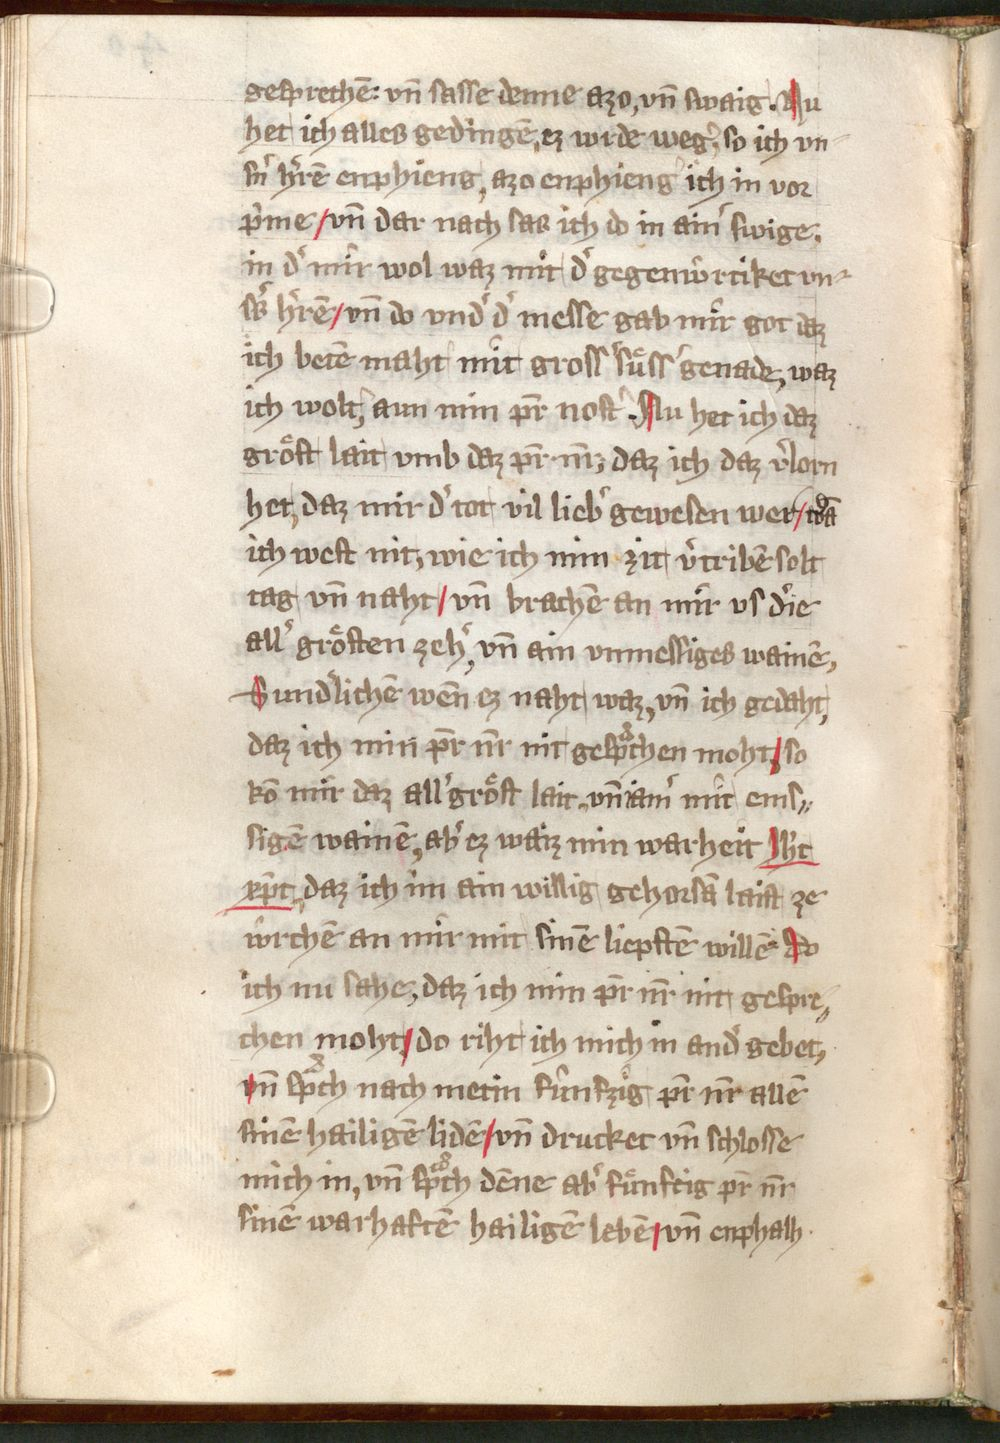 gesprechē: vn̄ sasse denne azo, vn̄ swaig. Nu
het ich alles gedingē, ez wrde weg͛, so ich vn-
sn͛ h͛rē enphieng, azo enphieng ich in vor
p͛me / vn̄ dar nach sas ich do in ain͛ swige.
in d͛ mir wol waz mit d͛ gegenẘrtiket vn-
sʼs h͛rē / vn̄ do vnd͛ d͛ messe gab mir got daz
ich betē maht mit gross͛ sůss͛ genade, waz
ich wolt, aun min pr̄ nost͛. Nu het ich daz
gröst lait vmb daz pr̄ nr̄, daz ich daz v͛lorn
het, daz mir d͛ tot vil lieb͛ gewesen wer / wā
ich west nit, wie ich min zit v͛tribē solt
tag vn̄ naht / vn̄ brachē an mir vs d͛ie
all͛ grösten zeh͛, vn̄ ain vnmessiges wainē,
Sund͛lichē wēn ez naht waz, vn̄ ich gedaht,
daz ich min pr̄ nr̄ nit gespͣchen moht / so
kō mir daz all͛ gröst lait, vn̄ iam͛ mit ems-
sigē wainē, ab͛ ez waiz min warheit Jhc̄
xp̄c, daz ich im ain willig gehorsā laist ze
ẘrchē an mir mit sinē liepstē willē. Do
ich nu sahe, daz ich min pr̄ nr̄ nit gespre-
chen moht / do riht ich mich in and͛ gebet,
vn̄ spͣch nach metin fünfzig pr̄ nr̄ allē
sinē hailigē lidē / vn̄ drucket vn̄ schlosse
mich in, vn̄ spͣch dēne ab͛ fünftig pr̄ nr̄
sinē warhaftē hailigē lebē / vn̄ enphalh